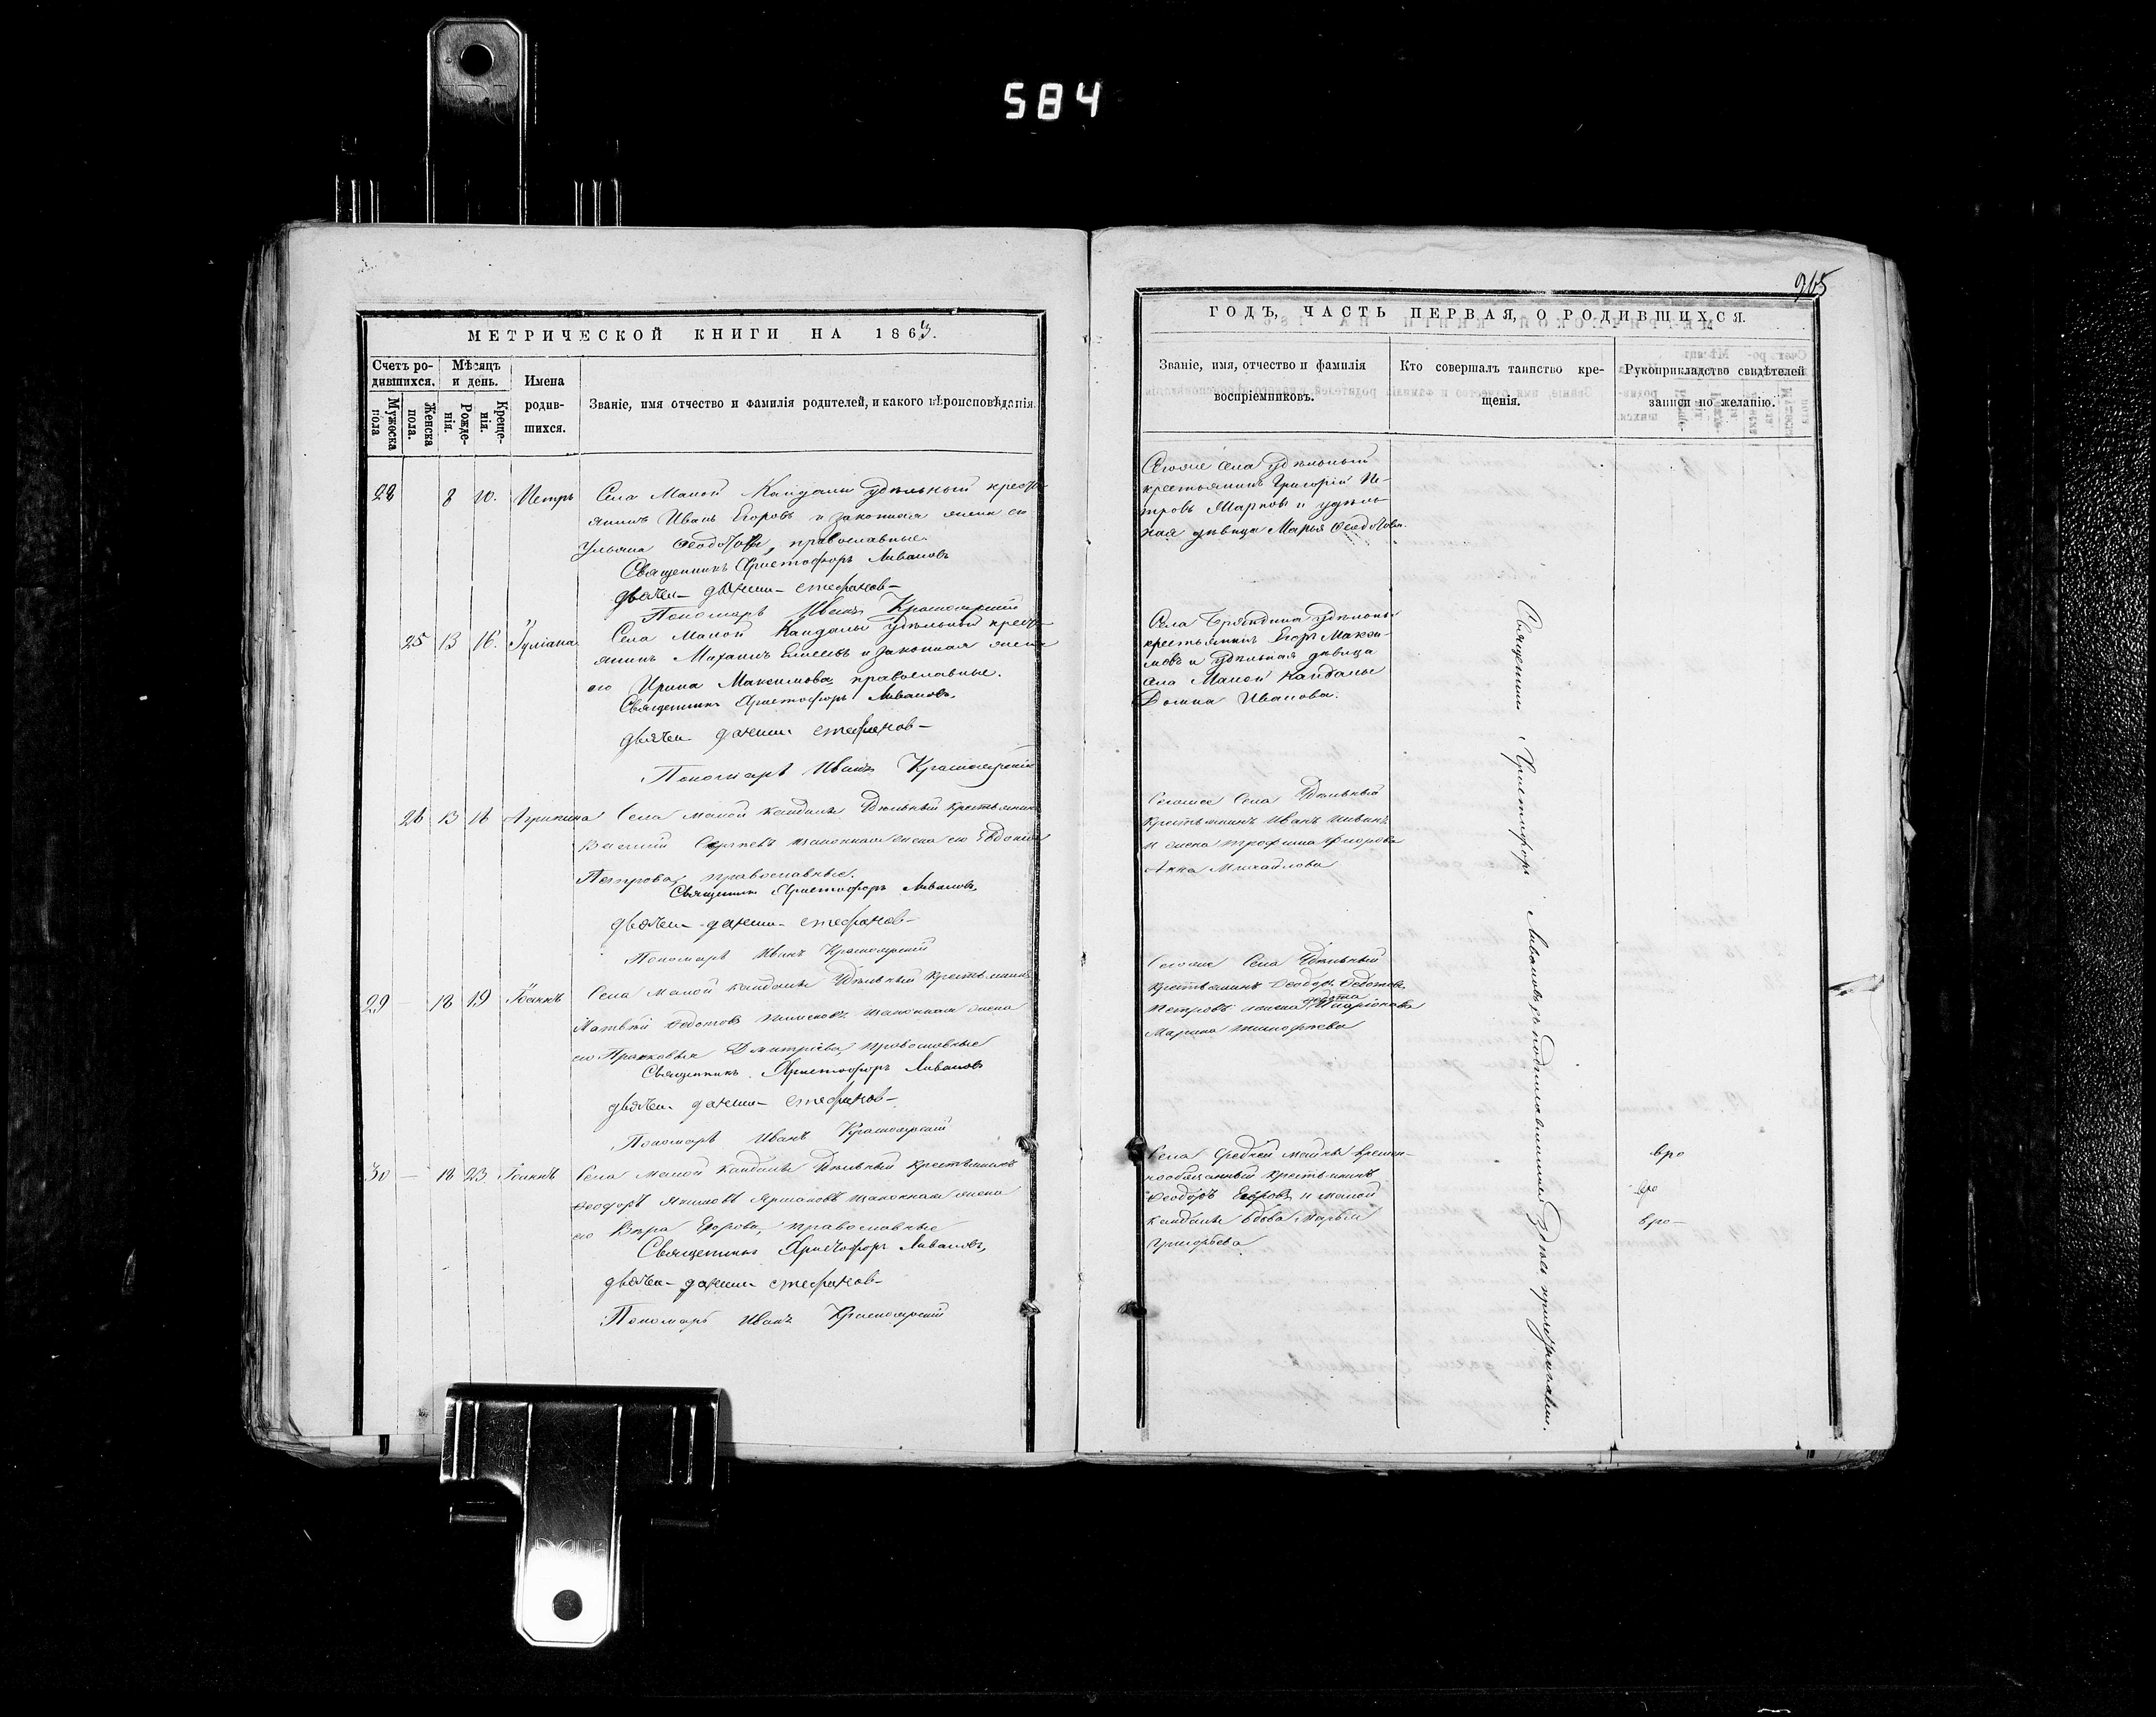 584
965
МЕТРИЧЕСКОЙ КНИГИ НА 1863.
Счетъ ро-
дившихся.
Мужеска
пола
Женска
пола.
Мѣсяцъ
и день.
Рожде-
нія.
Креще-
нія.
Имена
родив-
шихся.
Званіе, имя отчество и фамилія родителей, и какого вѣроисповѣданія.
28 8 10. Петръ
Села Малой Кандалы удѣльный кресть-
янинъ Иванъ Егоровъ и законная жена его
Ульяна Ѳеодотова, православные
Священникъ Христофоръ Ливановъ
дьячекъ Стефановъ
Пономарь Иванъ Красноярскій
25 13 16. Іуліана
Села Малой Кандалы удѣльный кресть-
янинъ Михаилъ Елисеевъ и законная жена
его Ирина Максимова православные.
Священникъ Христофоръ Ливановъ
дьячекъ Стефановъ
Пономарь Иванъ Красноярскій
26 13 16 Агрипина
Села малой кандалы Удѣльный крестьянинъ
Василій Сергѣевъ изаконная жена его Евдокия
Петрова, православные.
Священникъ Христофоръ Ливановъ
дьячекъ Стефановъ
Пономарь Иванъ Красноярскій
29 — 18 19 Іоаннъ
Села малой кандалы Удѣльный крестьянинъ
Матвѣй Ѳедотовъ изаконная жена
его Прасковья Дмитріева, православные
Священникъ Христофоръ Ливановъ
дьячекъ Стефановъ
Пономарь Иванъ Красноярскій
30 — 18 23. Іоаннъ
Села малой кандалы Удѣльный крестьянинъ
Ѳеодоръ Якимовъ изаконная жена
его Вѣра Егорова, православные
Священникъ Христофоръ Ливановъ
дьячекъ Стефановъ
Пономарь Иванъ Красноярскій
ГОДЪ, ЧАСТЬ ПЕРВАЯ, О РОДИВШИХСЯ.
Званіе, имя, отчество и фамилія
воспріемниковъ.
Кто совершалъ таинство кре-
щенія.
Рукоприкладство свидѣтелей
записи по желанію.
Тогоже села удѣльный
крестьянинъ Григорій Пе-
тровъ Марковъ и удѣль-
ная дѣвица Марья Ѳеодотова.
Села Бряндина удѣльный
крестьянинъ Егоръ Макси-
мовъ и удѣльная дѣвица
села Малой Кандалы
Домна Иванова.
Тогоже Села Удѣльный
крестьянинъ Иванъ
и жена трофима
Анна Михайлова
Тогоже Села Удѣльный
крестьянинъ Ѳеодоръ Ѳедотовъ
Петровъ Иларіонова
Марина тимофѣева
Села Средней
крестьянинъ
Ѳеодоръ Егоровъ и малой
кандалы вдова Марья
Григорьева
Священникъ Христофоръ Ливановъ